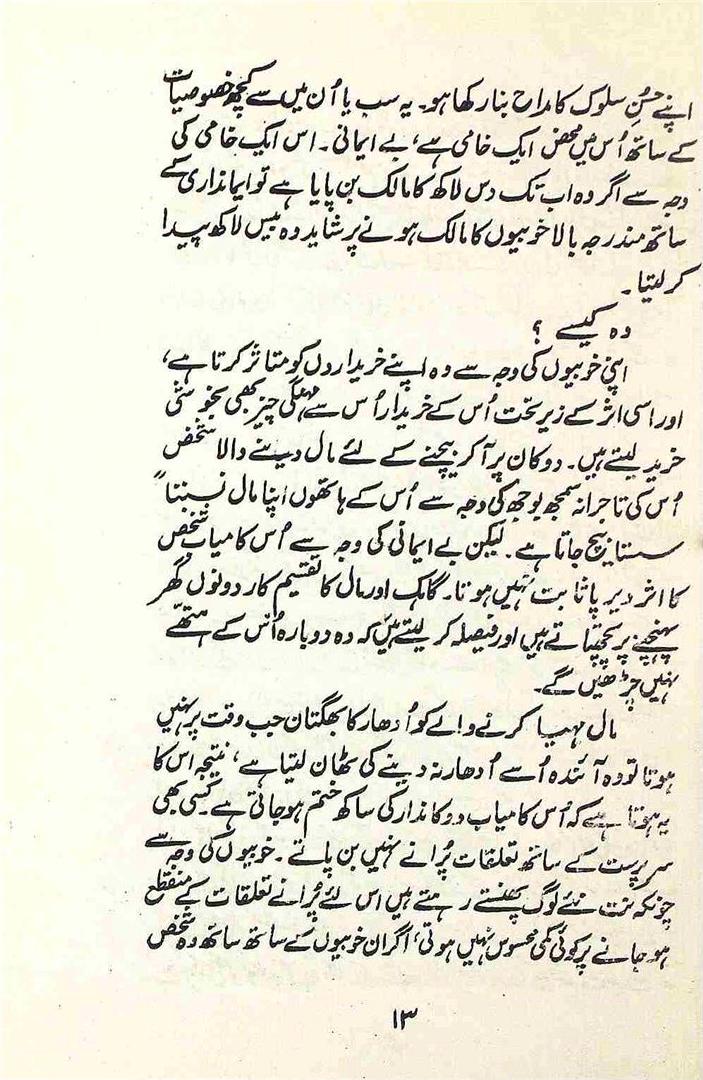 اپنے حُسنِ سلوک کا مداح بنا رکھا ہو۔ یہ سب یا اُن میں سے کچھ خصوصیات
کے ساتھ اُس میں محض ایک خامی ہے، بے ایمانی۔ اس ایک خامی کی
وجہ سے اگر وہ اب تک دس لاکھ کا مالک بن پایا ہے تو ایمانداری کے
ساتھ مندرجہ بالا خوبیوں کا مالک ہونے پر شاید وہ بیس لاکھ پیدا
کر لیتا۔
وہ کیسے ؟
اپنی خوبیوں کی وجہ سے وہ اپنے خریداروں کو متاثر کرتا ہے،
اور اسی اثر کے زیرِ تحت اُس کے خریدار اُس سے مہنگی چیز بھی بخوشی
خرید لیتے ہیں۔ دوکان پر آ کر بیچنے کے لئے مال دینے والا شخص
اُس کی تاجرانہ سمجھ بوجھ کی وجہ سے اُس کے ہاتھوں اپنا مال نسبتاً
سستا بیچ جاتا ہے۔ لیکن بے ایمانی کی وجہ سے اُس کامیاب شخص
کا اثر دیرپا ثابت نہیں ہوتا۔ گاہک اور مال کا تقسیم کار دونوں گھر
پہنچنے پر پچھتاتے ہیں اور فیصلہ کر لیتے ہیں کہ وہ دوبارہ اُس کے ہتھے
نہیں چڑھیں گے۔
مال مہیا کرنے والے کو اُدھار کا بھگتان جب وقت پر نہیں
ہوتا تو وہ آئندہ اُسے اُدھار نہ دینے کی ٹھان لیتا ہے، نتیجہ اس کا
یہ ہوتا ہے کہ اُس کامیاب دوکاندار کی ساکھ ختم ہو جاتی ہے۔ کسی بھی
سرپرست کے ساتھ تعلقات پُرانے نہیں بن پاتے۔ خوبیوں کی وجہ سے
چونکہ نِت نئے لوگ پھنستے رہتے ہیں اس لئے پُرانے تعلقات کے منقطع
ہو جانے پر کوئی کمی محسوس نہیں ہوتی، اگر ان خوبیوں کے ساتھ ساتھ وہ شخص
۱۳